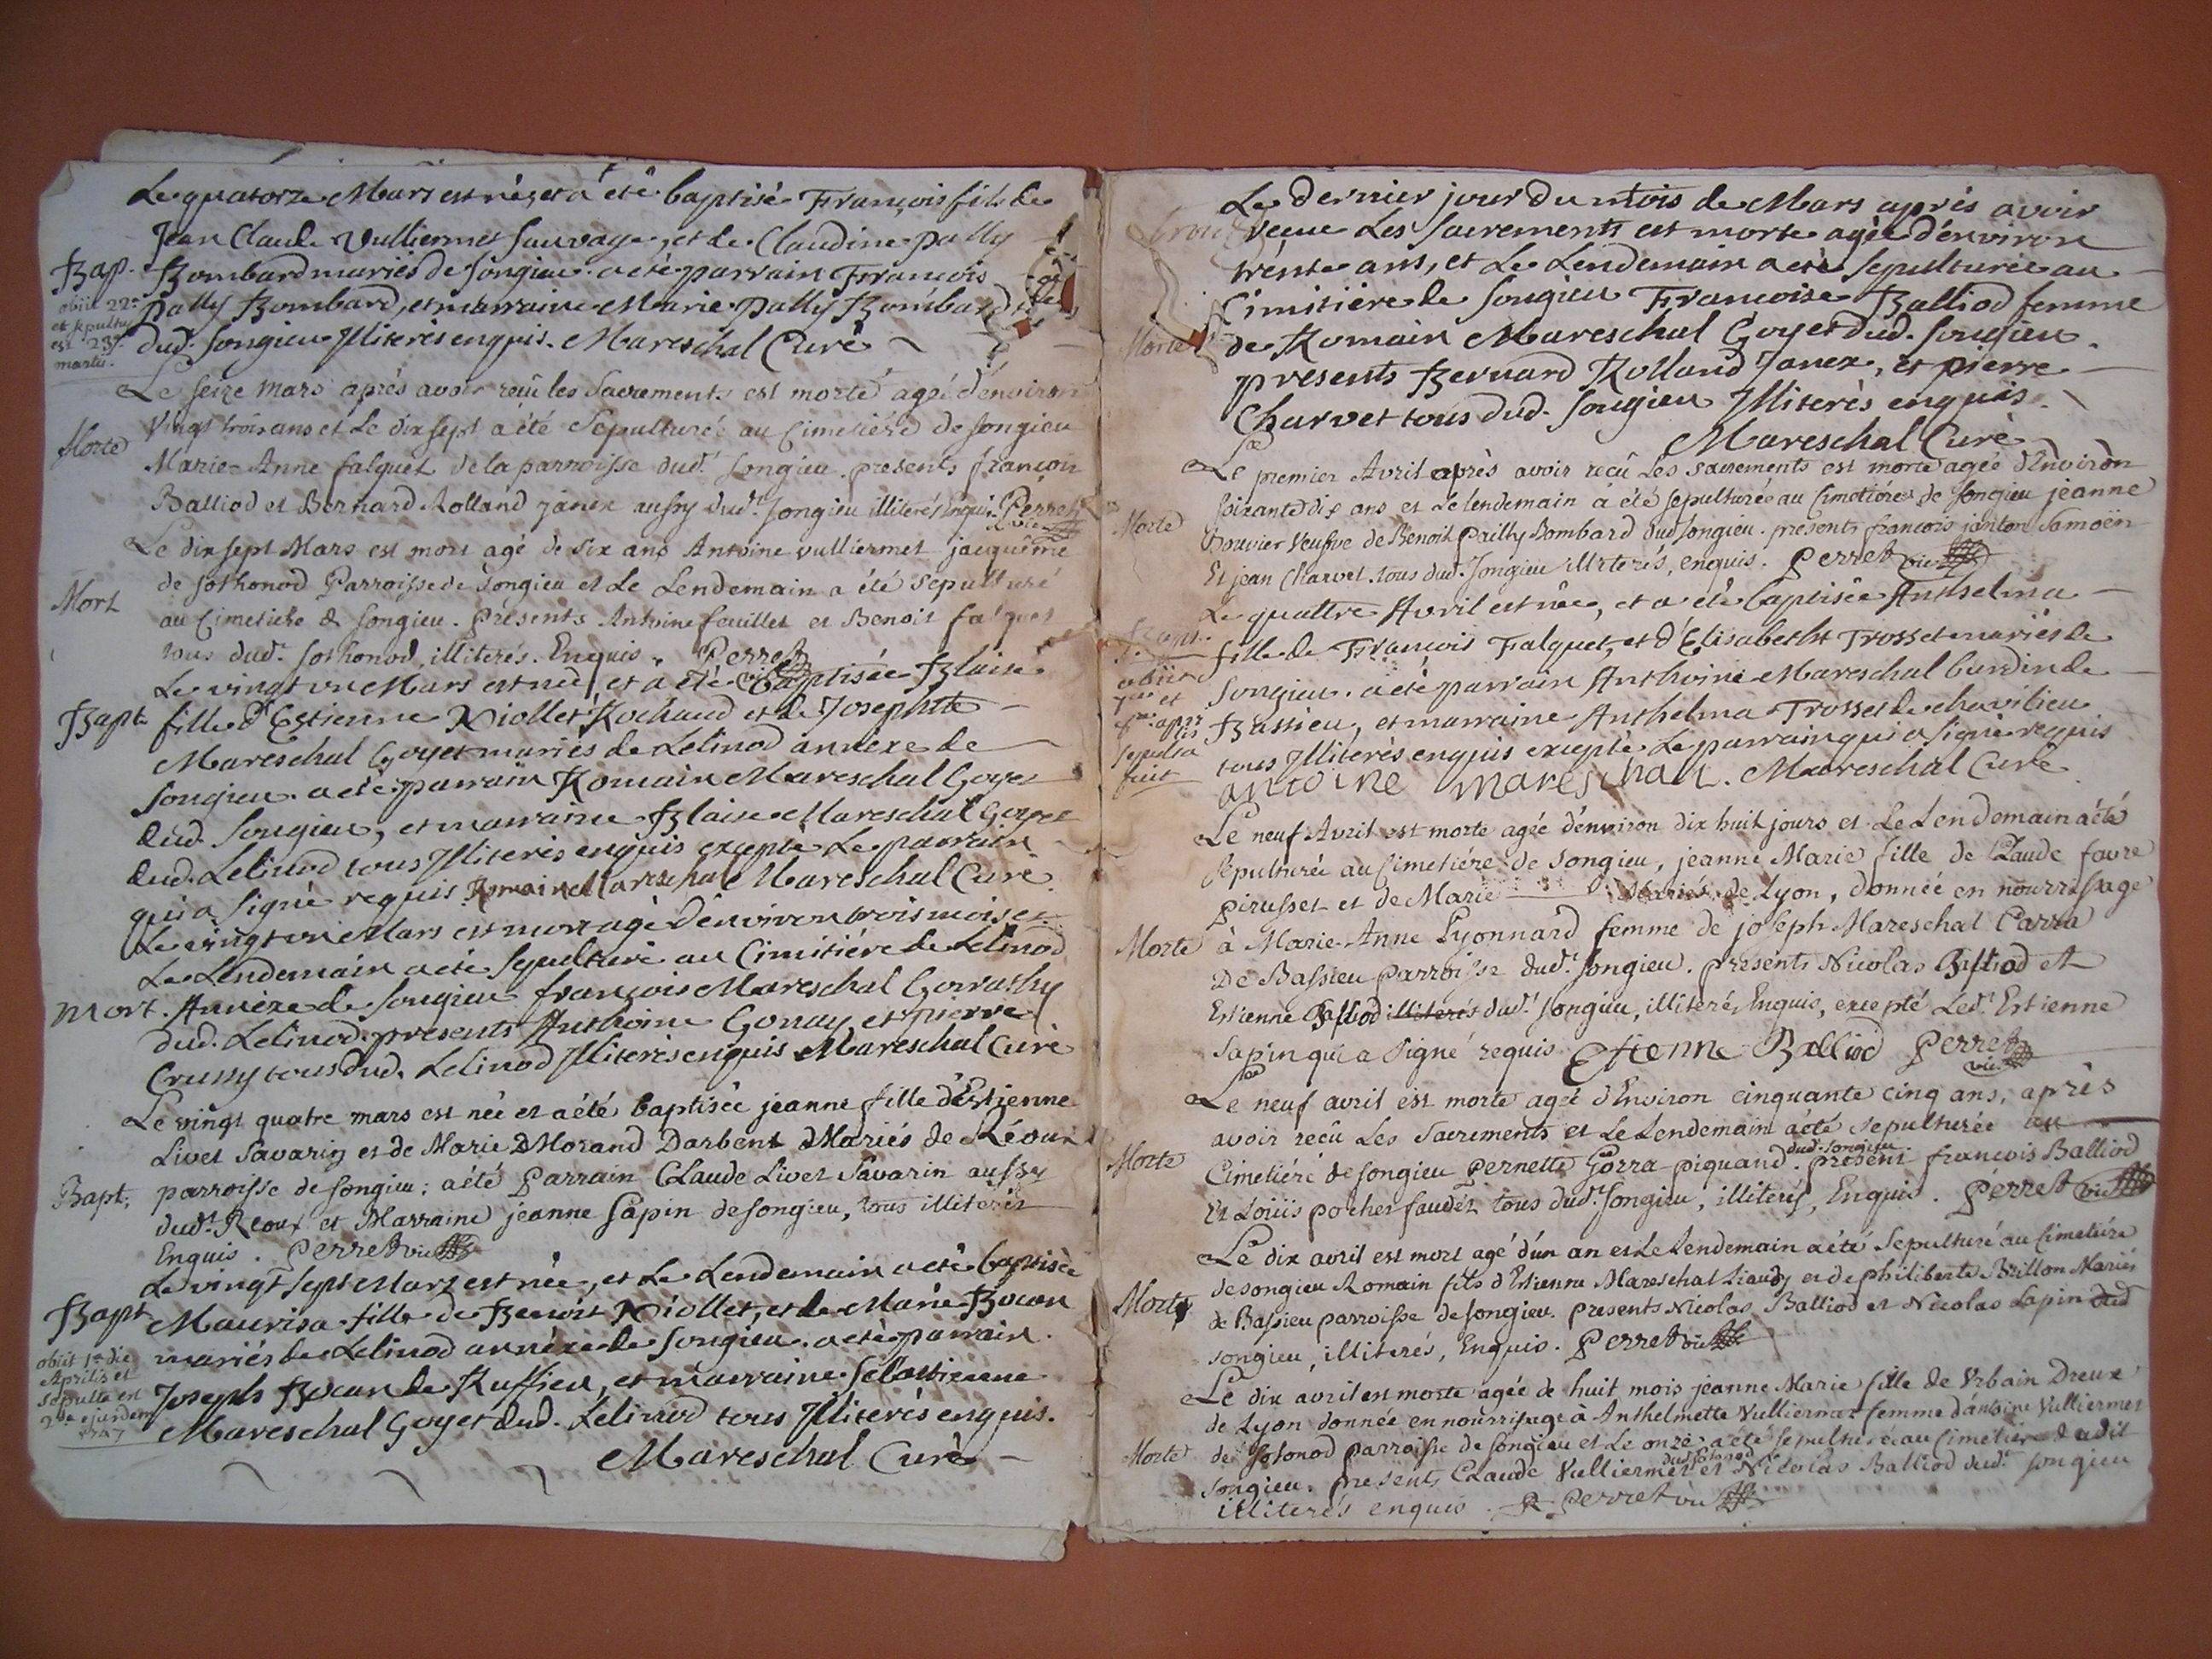 Le quatorze Mars est né, et a eté baptisé François fils de
Jean Claude Vulliermet Sauvage, et de Claudine pally
Bap. Bombard mariés de Songieu. a eté parrain François
obiit 22ª
pally Bombard, et marraine Marie pally Bombard
et sepultus
est 23ª
martii.
dud. Songieu Illiterés enquis. Mareschal Curé
Le seize Mars aprés avoir reçû les Sacrements est morte agée d'énviron
Morte
Vingt trois ans et Le dix sept a été Sepulturée au Cimetiére de Songieu
Marie-Anne falquet de la parroisse dud.t Songieu. presents françois
Balliod et Bernard Rolland janex aussy dud.t Songieu illiterés Enquis. Perret
vic
Le dix sept Mars est mort agé de six ans Antoine vulliermet jacquême
Mort
de Sothonod Parroisse de Songieu et Le Lendemain a été sepulturé
au Cimetiére de Songieu. Présents Antoine feuillet et Benoit falquet
tous dud.t Sothonod, illiterés. Enquis. Perret
vic
Le vingt un Mars est née, et a été baptisée Blaise
Bapt. fille d'Estienne Niollet Rochaud et de Josephte
Mareschal Goyet mariés de Lelinod annéxe de
Songieu. a eté parrain Romain Mareschal Goyet
dud. Songieu, et marraine Blaise Mareschal Goyet
dud. Lelinod tous Illiterés enquis excepté Le parrain
qui a signé requis. Romain Mareschal Mareschal Curé
Le vingt un Mars est mort agé d'énviron trois mois et
Le Lendemain a eté sepulturé au Cimitiére de Lelinod
Mort. Annéxe de Songieu françois Mareschal Gorrathy
dud. Lelinod. presents Anthoine Gonay, et pierre
Crussy tous dud. Lelinod Illiterés enquis Mareschal Curé
Le vingt quatre mars est née et a été baptisée jeanne fille d'Estienne
Livet Savarin et de Marie Morand Darbent Mariés de Réoux
Bapt. parroisse de Songieu; a été Parrain Claude Livet Savarin aussy
dud.t Reoux et Marraine jeanne Sapin de Songieu, tous illiterés
Enquis. Perret vic
Le vingt sept Mars est née, et Le Lendemain a eté baptisée
Bapt. Maurisa fille de Benoit Niollet, et de Marie Bocan
mariés de Lelinod annéxe de Songieu. a eté parrain
obiit 1ª die
Aprilis et
sepulta est
2ª ejusdem
1747
Joseph Bocan de Ruffieu, et marraine
Mareschal Goyet dud. Lelinod tous Illiterés enquis.
Mareschal Curé
Le dernier jour du mois de Mars aprés avoir
reçue Les Sacrements est morte agée d'énviron
trénte ans, et Le Lendemain a eté sepulturée au
Cimitiére de Songieu Françoise Balliod femme
Morte de Romain Mareschal Goyet dud. Songieu.
presents Bernard Rolland Janex, et pierre
Charvet tous dud. Songieu Illiterés enquis.
Mareschal Curé
Le premier Avril aprés avoir reçû Les sacrements est morte agée d'Environ
soixante dix ans et Le lendemain a été sepulturée au Cimetiére de Songieu jeanne
Morte
Bouvier Veufve de Benoit Pailly Bombard dud Songieu. presents françois janton Samoën
Et jean Charvet tous dud. Songieu illiterés, enquis. Perret vic
Le quattre Avril est née, et a eté baptisée Anthelma
Bapt. fille de François Falquet, et d'Elisabetht Trosset mariés de
obiit
7ª et
8ª aprilis
sepulta
fuit
Songieu. a eté parrain Anthoine Mareschal burdin de
Bassieu, et marraine Anthelma Trosset de chavilieu
tous Illiterés enquis excepté Le parrain qui a signé requis
antoine mareschal. Mareschal Curé
Le neuf Avril est morte agée d'énviron dix huit jours et Le Lendemain a été
sepulturée au Cimetiére de Songieu, jeanne Marie fille de Claude favre
pirusset et de Marie Mariés de Lyon, donnée en nourrissage
Morte à Marie-Anne Lyonnard femme de joseph Mareschal Carra
De Bassieu parroisse dud.t Songieu. presents Nicolas Balliod et
Estienne Balliod illiterés dud.t Songieu, illiterés, Enquis, excepté Led.t Estienne
Sapin qui a signé requis Etienne Balliod Perret
vic
Le neuf avril est morte agée d'Environ cinquante cinq ans, aprés
avoir reçû Les Sacrements et Le Lendemain a été sepulturée au
Morte Cimetiére de Songieu Pernette Gorra piquand dud. Songieu. présent françois Balliod
Et Loüis pocher faudez tous dud.t Songieu, illiterés, Enquis. Perret vic
Le dix avril est mort agé d'un an et Le Lendemain a été Sepulturé au Cimetiére
de Songieu Romain fils d'Estienne Mareschal Liaudy et de philiberte Brillon Mariés
Mort de Bassieu parroisse de Songieu. presents Nicolas Balliod et Nicolas Lapin dud
Songieu, illiterés, Enquis. Perret vic
Le dix avril est morte agée de huit mois jeanne Marie fille de Urbain Dreux
de Lyon donnée en nourrissage à Anthelmette Vulliermet femme d'antoine Vulliermet
Morte de Sotonod parroisse de Songieu et Le onze a été sepulturée au Cimetiére dudit
Songieu. presents Claude Vulliermet dud Sotonod et Nicolas Balliod dud.t Songieu
illiterés enquis. Perret vic